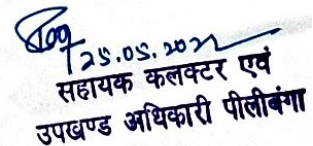 25.05.202
सहायक कलक्टर एवं
उपखण्ड अधिकारी पीलीबंगा